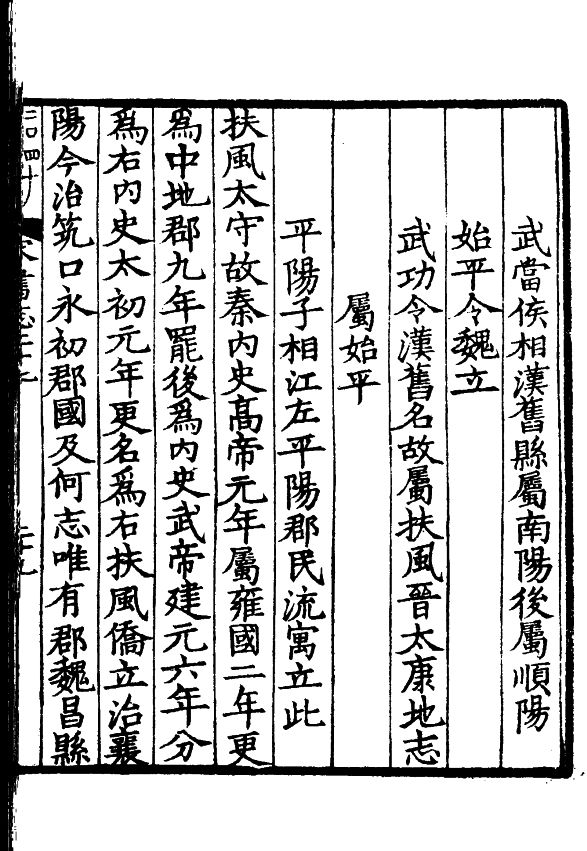 武當侯相漢舊縣屬南陽後屬順陽
始平令魏立
武功令漢舊名故屬扶風晉太康地志
屬始平
平陽子相江左平陽郡民流寓立此
扶風太守故秦內史高帝元年屬雍國二年更
爲中地郡九年罷後爲內史武帝建元六年分
爲右內史太初元年更名爲右扶風僑立治襄
陽今治筑口永初郡國及何志唯有郡魏昌縣